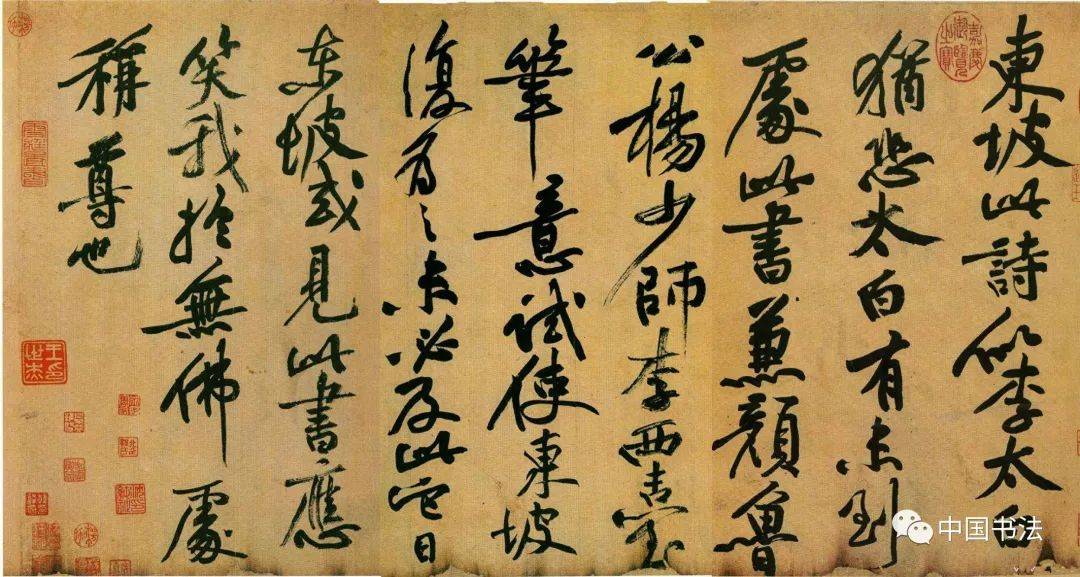 東坡此詩似李太白
猶恐太白有未到
處此書兼顏魯
公楊少師李西臺
筆意試使東坡
復為之未必及此它日
東坡或見此書應
笑我於無佛處
稱尊也
嘉慶御覽之寶
王世杰印
中国书法